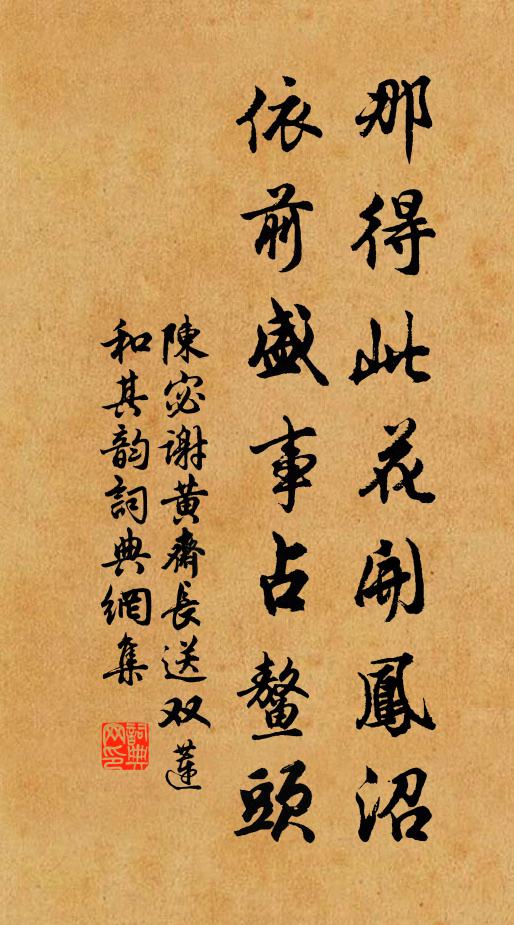 那得此花開鳳沼
依前盛事占鰲頭
陳宓謝黃齋長送双蓮
和其韵詞典網集
詞典網印